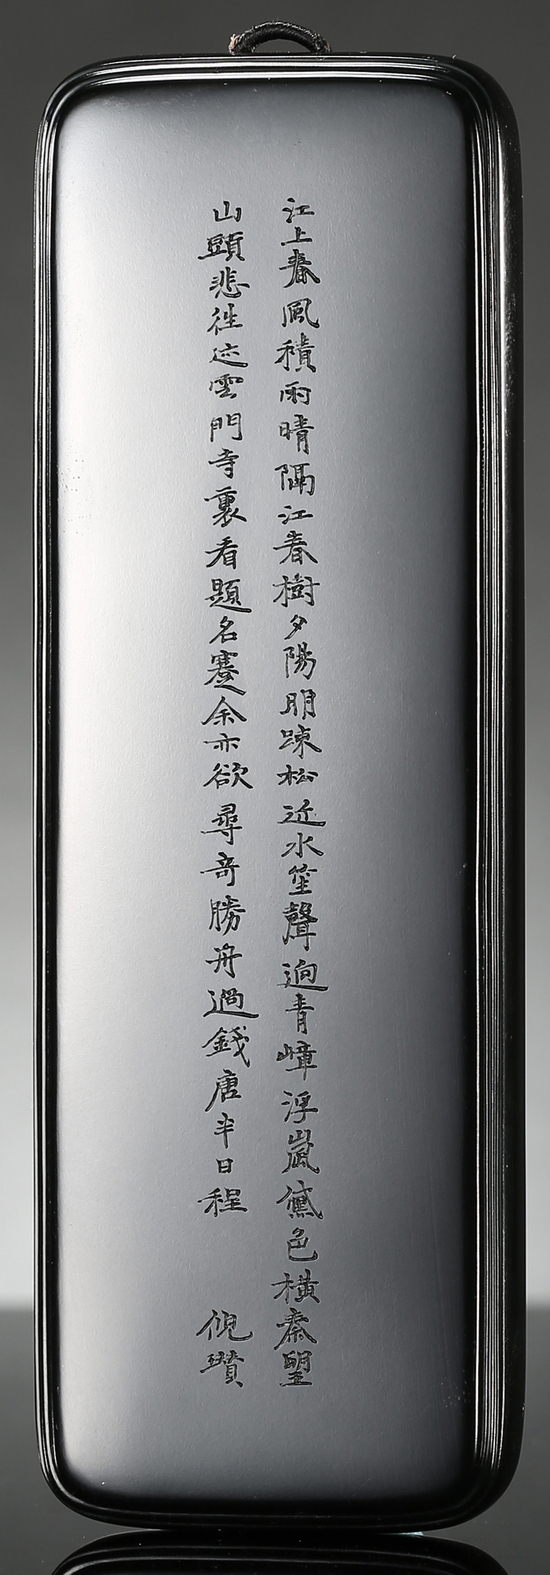 江上春風積雨晴隔江春樹夕陽明踈松近水笙聲迥青嶂浮嵐黛色橫秦望
山頭悲徃迹雲門寺裏看題名蹇余亦欲尋奇勝舟過錢唐半日程 倪瓚